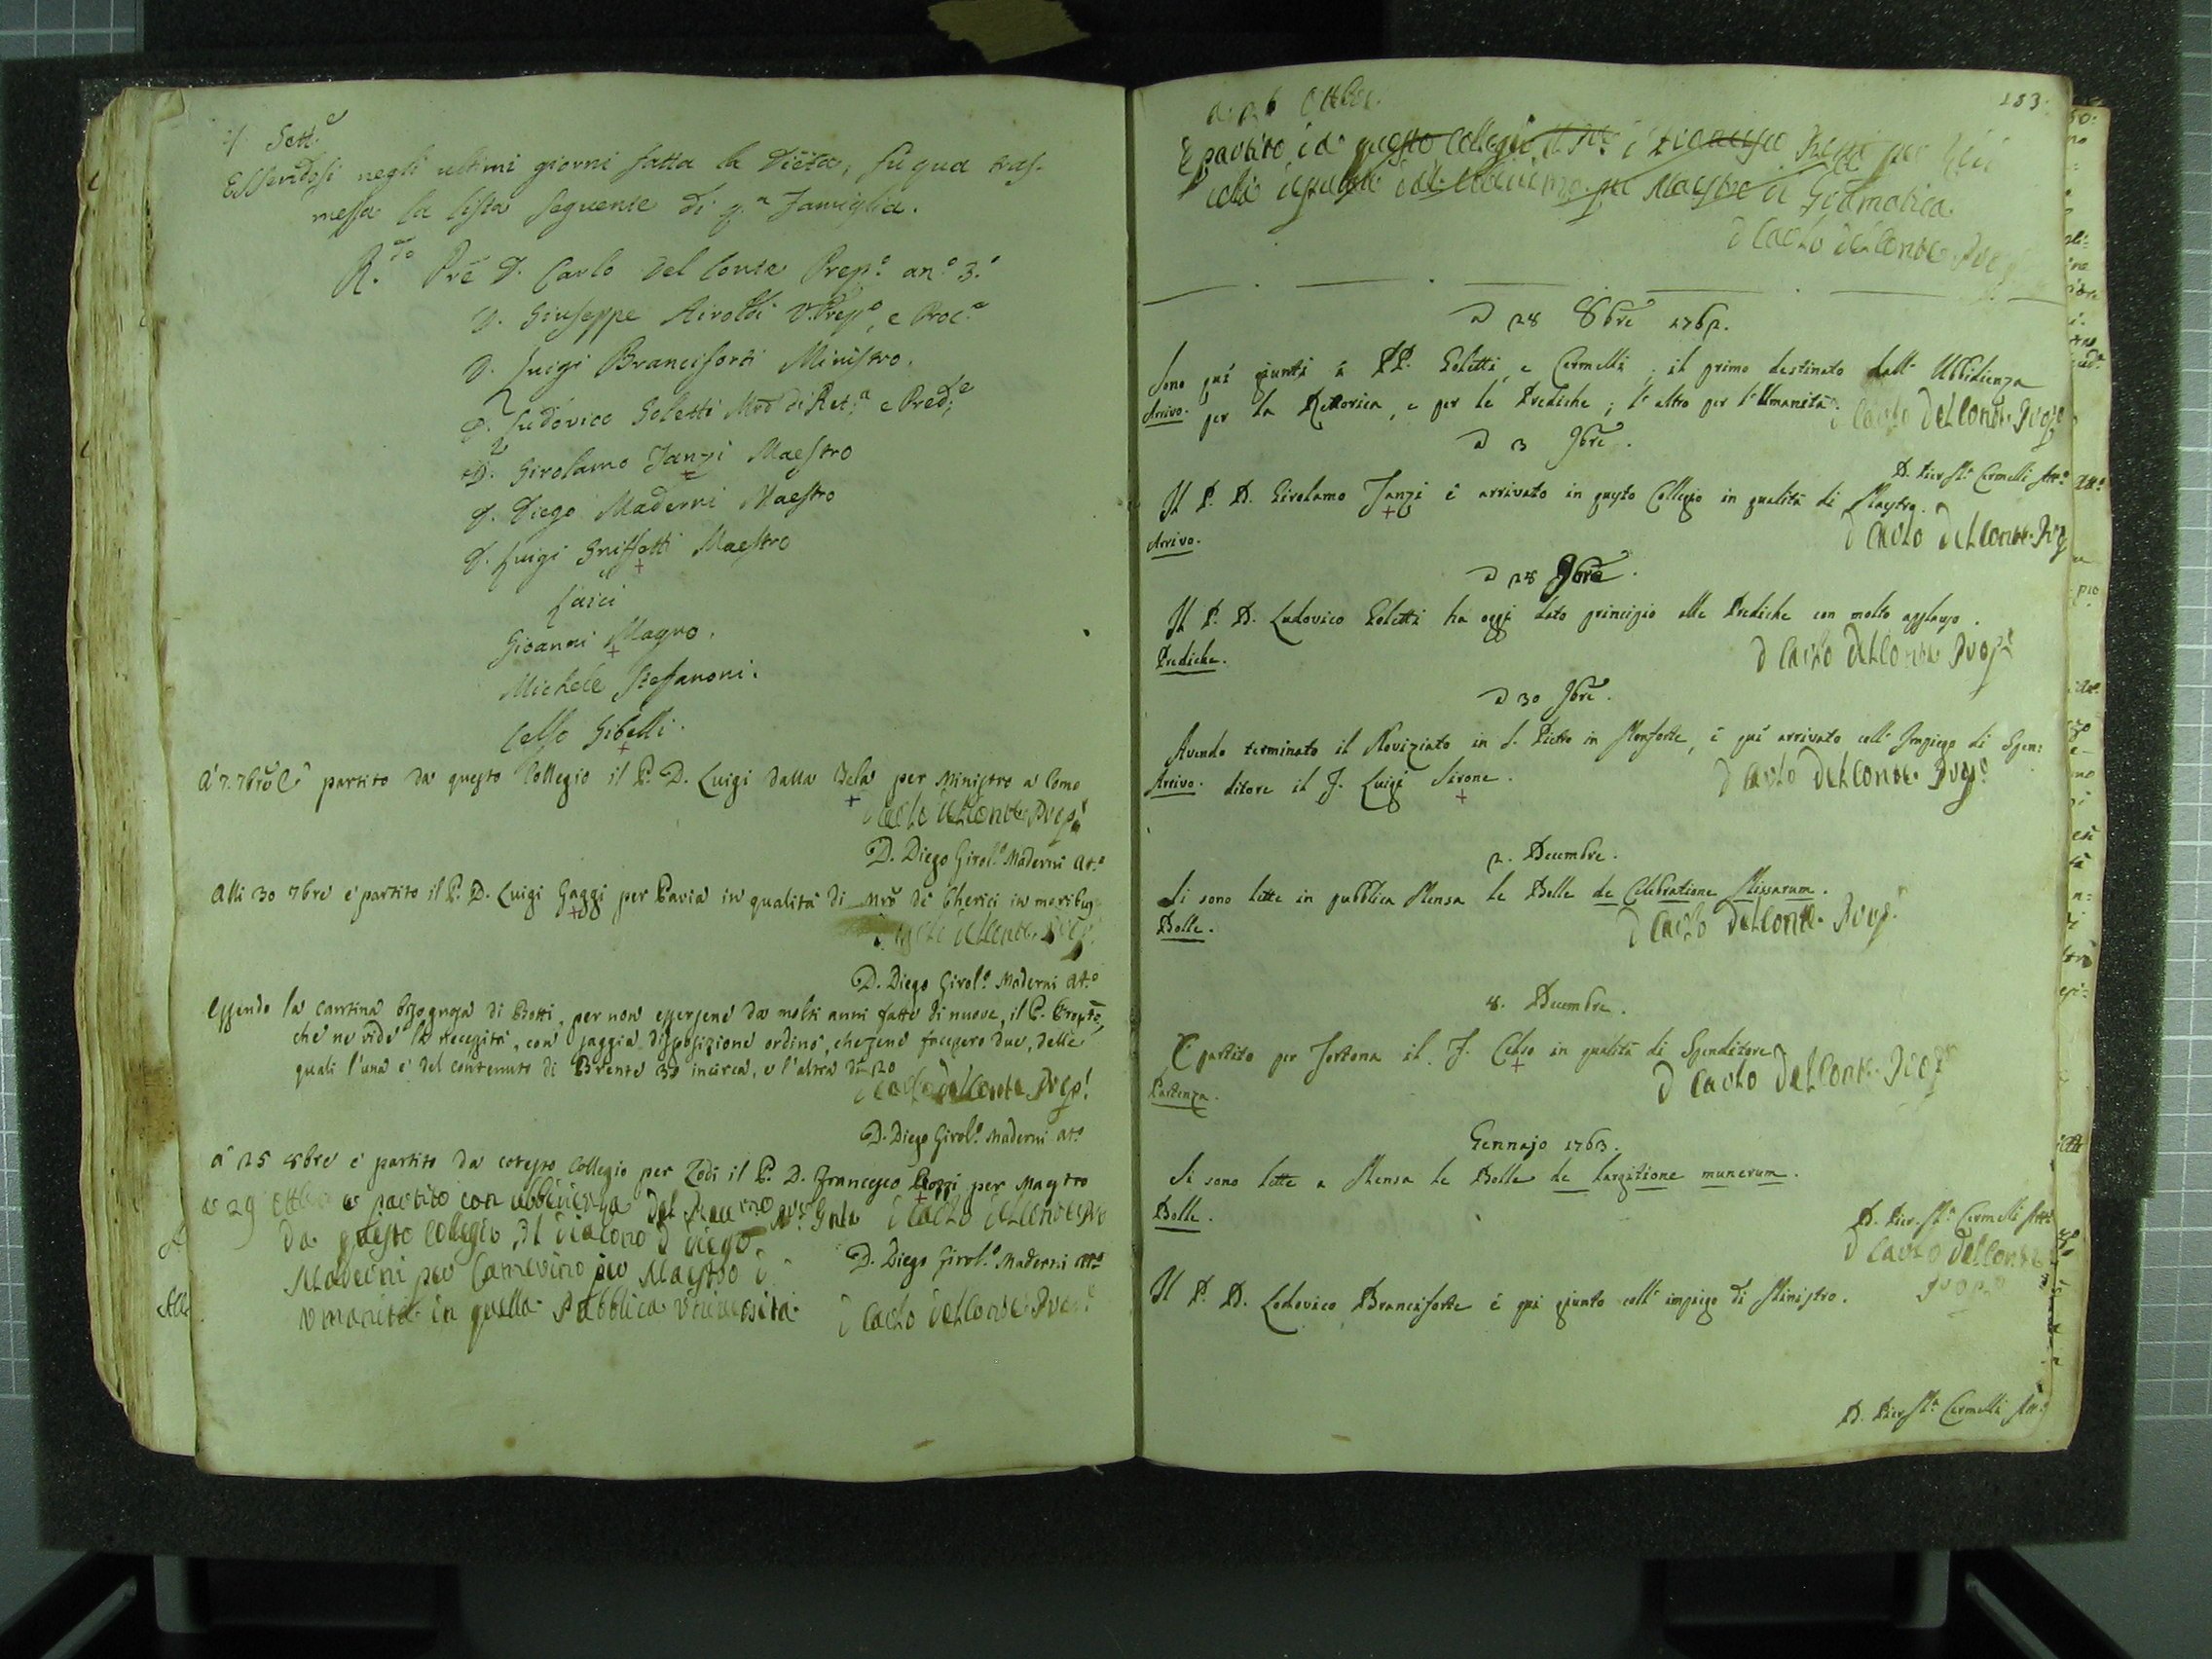 4 Sett.e
Essendosi negli ultimi giorni fatta la Dieta, fu qua tras-
messa la lista seguente di q.a Famiglia.
R.do Pre D. Carlo del Conte Prep.o an.o 3.o
D. Giuseppe Airoldi V.Prep.o, e Proc.e
D. Luigi Branciforti Ministro.
D. Ludovico Goletti Mro di Ret.a e Pred.e
D. Girolamo Fanzi Maestro
D. Diego Maderni Maestro
D. Luigi Griffetti Maestro
Laici
Gioanni Magno.
Michele Steffanoni.
Celso Gibelli.
A' 7. 7bre è partito da questo Collegio il P. D. Luigi dalla Bela per Ministro a Como
D Carlo del Conte Prep.o
D. Diego Girol.o Maderni At.o
Alli 30 7bre è partito il P. D. Luigi Gaggi per Pavia in qualità di Mro de Cherici in moribus
del Conte Prep.
D. Diego Girol.o Maderni At.o
Essendo la Cantina bisognosa di Botti, per non essersene da molti anni fatte di nuove, il P. Propto,
che ne vide la necessità, con saggia disposizione ordinò, che sene facessero due, delle
quali l'una è del contenuto di Brente 30 incirca, e l'altra di 20
D Carlo del Conte Prep.
D. Diego Girol.o Maderni At.o
A' 25 8bre è partito da cotesto Collegio per Lodi il P. D. Francesco Rozzi per Maestro
a 29 Ottbre è partito con ubbidienza del Reve.mo P. Gnle D Carlo del Conte Pre
da questo Collegio, Il diacono D Diego
D. Diego Girol.o Maderni At.o
Maderni per Camerino per Maestro d
Umanità in quella Pubblica Università D Carlo del Conte Prep.o
183.
a 26 Ottbre.
È partito da questo Collegio il Pre D Francesco per Lodi
colà deputato dal Reverendmo per Maestro di Gramatica
D Carlo del Conte Prep
A 28 8bre 1762.
Sono quì giunti i PP. Goletti, e Cermelli; il primo destinato dall' Ubbidienza
Arrivo. per la Rettorica, e per le Prediche; l'altro per l'Umanità. D Carlo del Conte Prep.o
A 3 9bre.
D. Pier M.a Cermelli Att.o
Il P. D. Girolamo Fanzi è arrivato in questo Collegio in qualità di Maestro.
Arrivo.
D Carlo del Conte Prep
A 28 9bre.
Il P. D. Ludovico Goletti ha oggi dato principio alle Prediche con molto applauso.
Prediche.
D Carlo del Conte Prep.o
A 30 9bre.
Avendo terminato il Noviziato in S. Pietro in Monforte, è quì arrivato coll' Impiego di Spen:
Arrivo. ditore il F. Luigi Sirone.
D Carlo del Conte Prep.o
2. Decembre.
Si sono lette in pubblica Mensa le Bolle de Celebratione Missarum.
Bolle.
D Carlo del Conte Prep.
8. Decembre.
È partito per Tortona il F. Celso in qualità di Spenditore
Partenza.
D Carlo del Conte Prep
Gennajo 1763.
Si sono lette a Mensa le Bolle de largitione munerum.
Bolle.
D. Pier M.a Cermelli Att.o
D Carlo del Conte
Prep.o
Il P. D. Lodovico Branciforte è qui giunto coll' impiego di Ministro.
D. Pier M.a Cermelli Att.o